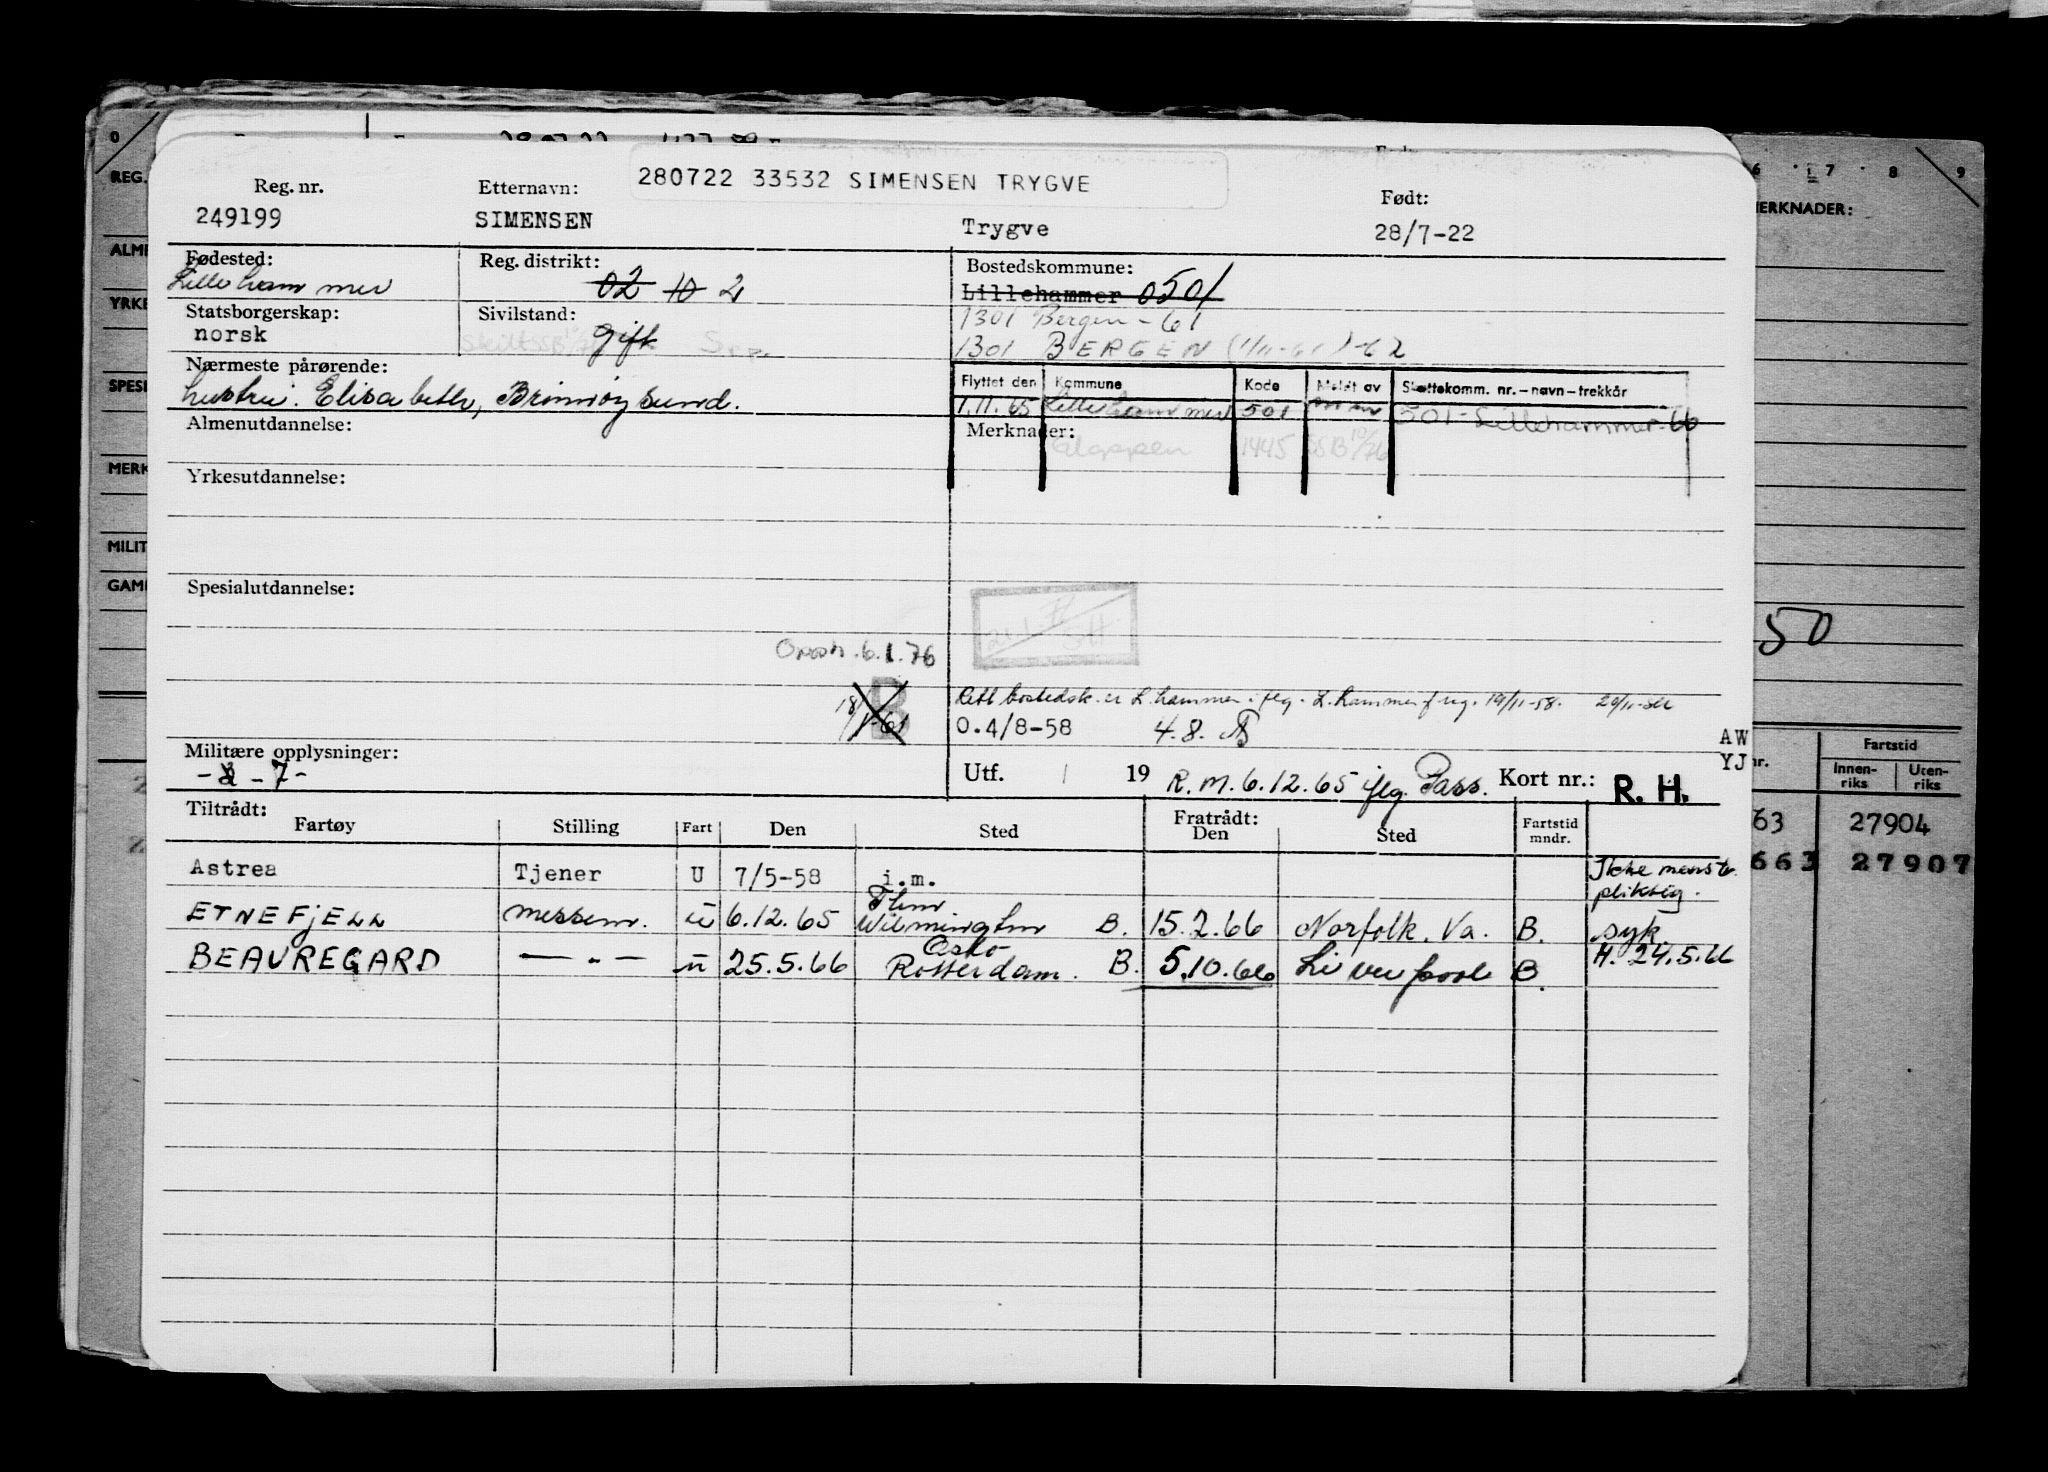 280722 33532 SIMENSEN TRYGVE
Reg. nr. Etternavn: Født:
249199 SIMENSEN Trygve 28/7-22
Fødested: Reg. distrikt: Bostedskommune:
Lillehammer 02 10 2 Lillehammer 0501
Statsborgerskap: Sivilstand: 1301 Bergen - 61
norsk gift 1301 BERGEN (1/11-61)-62
Nærmeste pårørende:
hustru. Elisabeth, Brønnøysund.
Flyttet den Kommune Kode Meldt av Skattekomm. nr. – navn – trekkår
1.11.65 Lillehammer 501 501-Lillehammer-66
Almenutdannelse: Merknader:
Gloppen 1445 SSB 19/76
Yrkesutdannelse:
Spesialutdannelse:
6.1.76
Rett bostedsk. er L.hammer iflg. L.hammer f.reg. 19/11-58.
18/1-61 B
O.4/8-58 4.8.
Militære opplysninger: AW
- 7 - YJ
Utf. 19 R.M. 6.12.65 iflg. Pass. Kort nr.: R. H.
Tiltrådt: Fratrådt:
Fartøy Stilling Fart Den Sted Den Sted Fartstid mndr.
Astrea Tjener U 7/5-58 i.m. Ikke mønstr. pliktig.
ETNEFJELL messem. U 6.12.65 Flm Wilmington B. 15.2.66 Norfolk. Va. B. syk
BEAUREGARD — " — U 25.5.66 Oslo Rotterdam. B. 5.10.66 Liverpool B. H. 24.5.66
0
REG.
ALME
YRKE
SPESI
MERK
MILIT
GAML
6 7 8 9
MERKNADER:
50
nr. Fartstid
Innen-riks Uten-riks
63 27904
663 27907